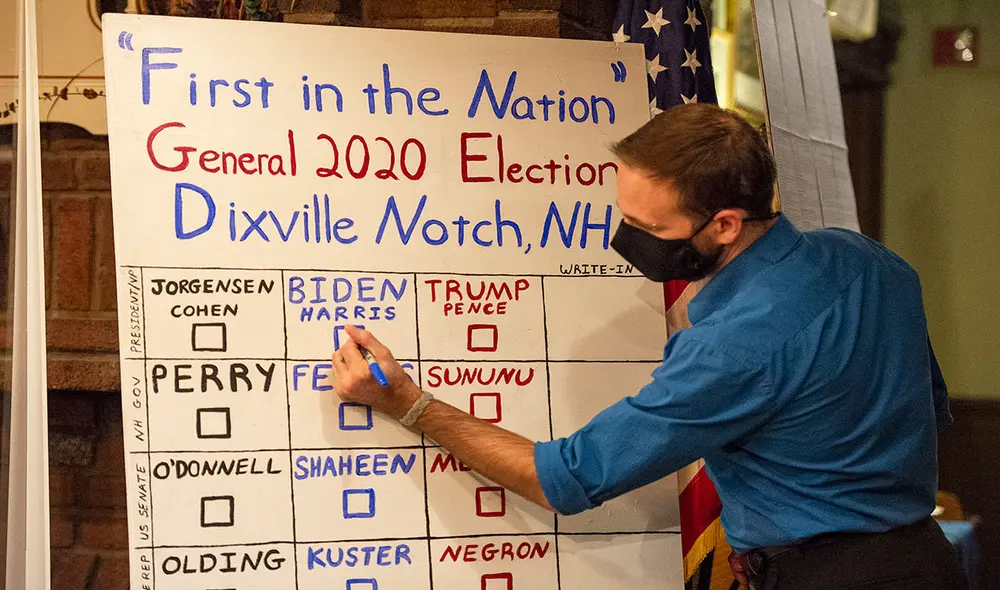 "First in the Nation"
General 2020 Election
Dixville Notch, NH
WRITE-IN
PRESIDENT/VP
JORGENSEN BIDEN TRUMP
COHEN HARRIS PENCE
NH GOV
PERRY SUNUNU
US SENATE
O'DONNELL SHAHEEN
REP
OLDING KUSTER NEGRON